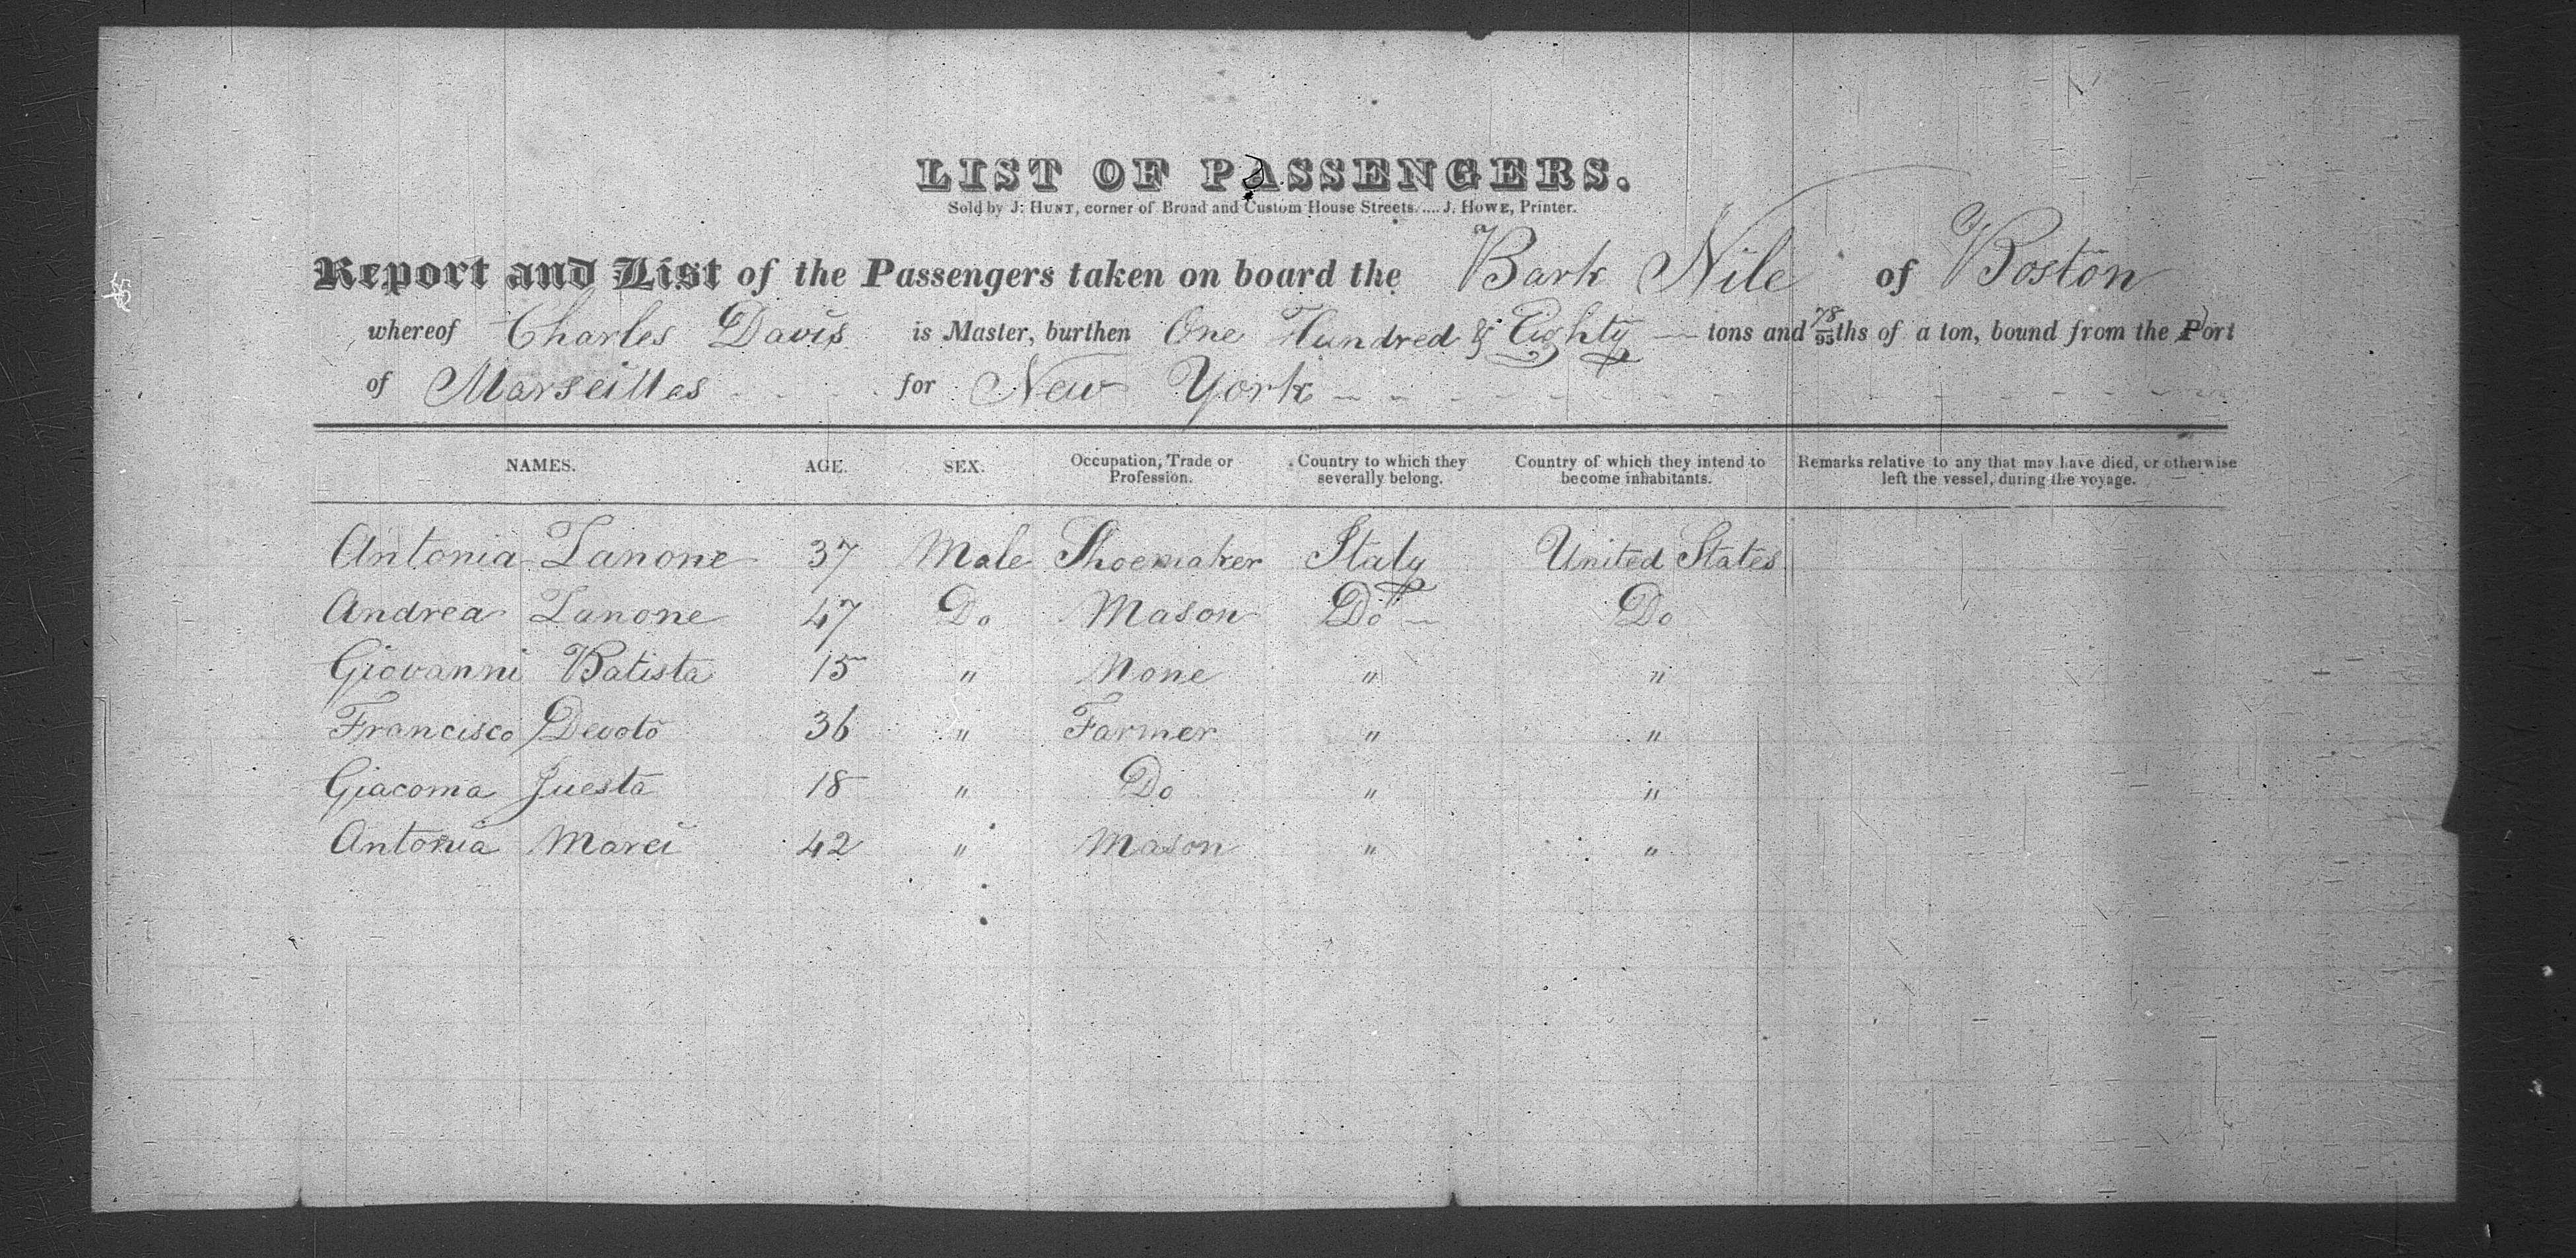 LIST OF PASSENGERS.
Sold by J. HUNT, corner of Broad and Custom House Streets.....J. HOWE, Printer.
Report and List of the Passengers taken on board the Bark Nile of Boston
whereof Charles Davis is Master, burthen One Hundred & Eighty tons and 78/95ths of a ton, bound from the Port
of Marseilles for New York
NAMES. AGE. SEX. Occupation, Trade or Profession. Country to which they severally belong. Country of which they intend to become inhabitants. Remarks relative to any that may have died, or otherwise left the vessel, during the voyage.
Antonia Lanone 37 Male Shoemaker Italy United States
Andrea Lanone 47 Do Mason Do Do
Giovanni Batista 15 " None " "
Francisco Devoto 36 " Farmer " "
Giacoma Juesta 18 " Do " "
Antonia Marei 42 " Mason " "